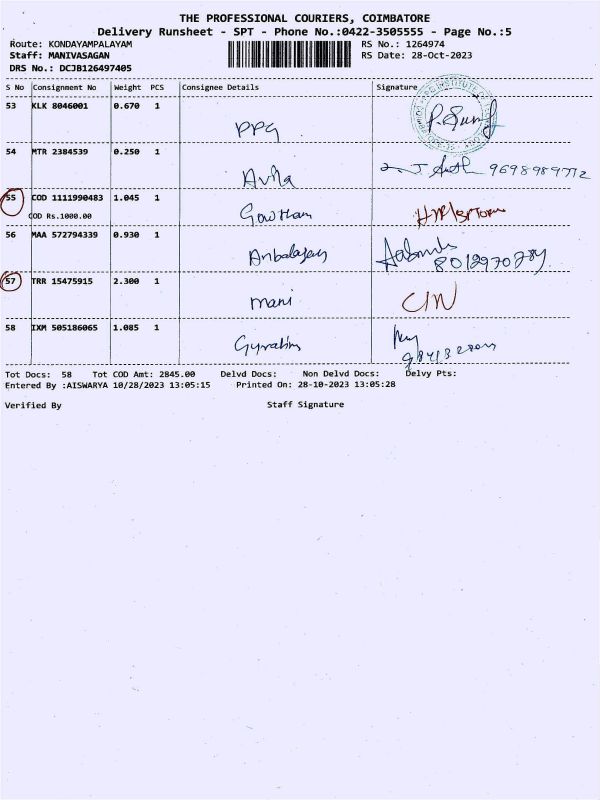 THE PROFESSIONAL COURIERS, COIMBATORE
Delivery Runsheet - SPT - Phone No.:0422-3505555 - Page No.:5
Route: KONDAYAMPALAYAM RS No.: 1264974
Staff: MANIVASAGAN RS Date: 28-Oct-2023
DRS No.: DCJB126497405
S No Consignment No Weight PCS Consignee Details Signature
53 KLK 8046001 0.670 1
PPG
54 MTR 2384539 0.250 1
9698989772
55 COD 1111990483 1.045 1
COD Rs.1000.00 Gowtham
56 MAA 572794339 0.930 1
Anbalagan
57 TRR 15475915 2.300 1
mani
58 IXM 505186065 1.085 1
Tot Docs: 58 Tot COD Amt: 2845.00 Delvd Docs: Non Delvd Docs: Delvy Pts:
Entered By :AISWARYA 10/28/2023 13:05:15 Printed On: 28-10-2023 13:05:28
Verified By Staff Signature